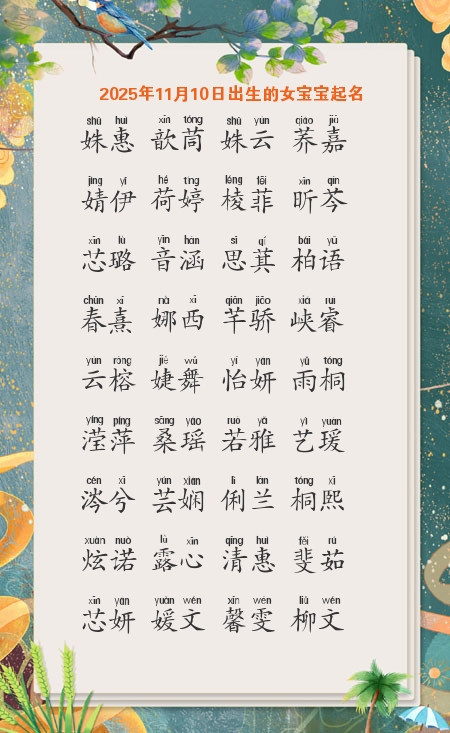 2025年11月10日出生的女宝宝起名
shū huì xīn tóng shū yún qiáo jiā
姝惠 歆茼 姝云 荞嘉
jìng yī hé tíng léng fěi xīn qín
婧伊 荷婷 棱菲 昕芩
xīn lù yīn hán sī qí bái yǔ
芯璐 音涵 思萁 柏语
chūn xī nà xī qiān jiāo xiá ruì
春熹 娜西 芊骄 峡睿
yún róng jié wǔ yí yán yǔ tóng
云榕 婕舞 怡妍 雨桐
yíng píng sāng yáo ruò yǎ yì yuàn
滢萍 桑瑶 若雅 艺瑗
cén xī yún xián lì lán tóng xī
涔兮 芸娴 俐兰 桐熙
xuàn nuò lù xīn qīng huì fěi rú
炫诺 露心 清惠 斐茹
xīn yán yuàn wén xīn wén liǔ wén
芯妍 媛文 馨雯 柳文